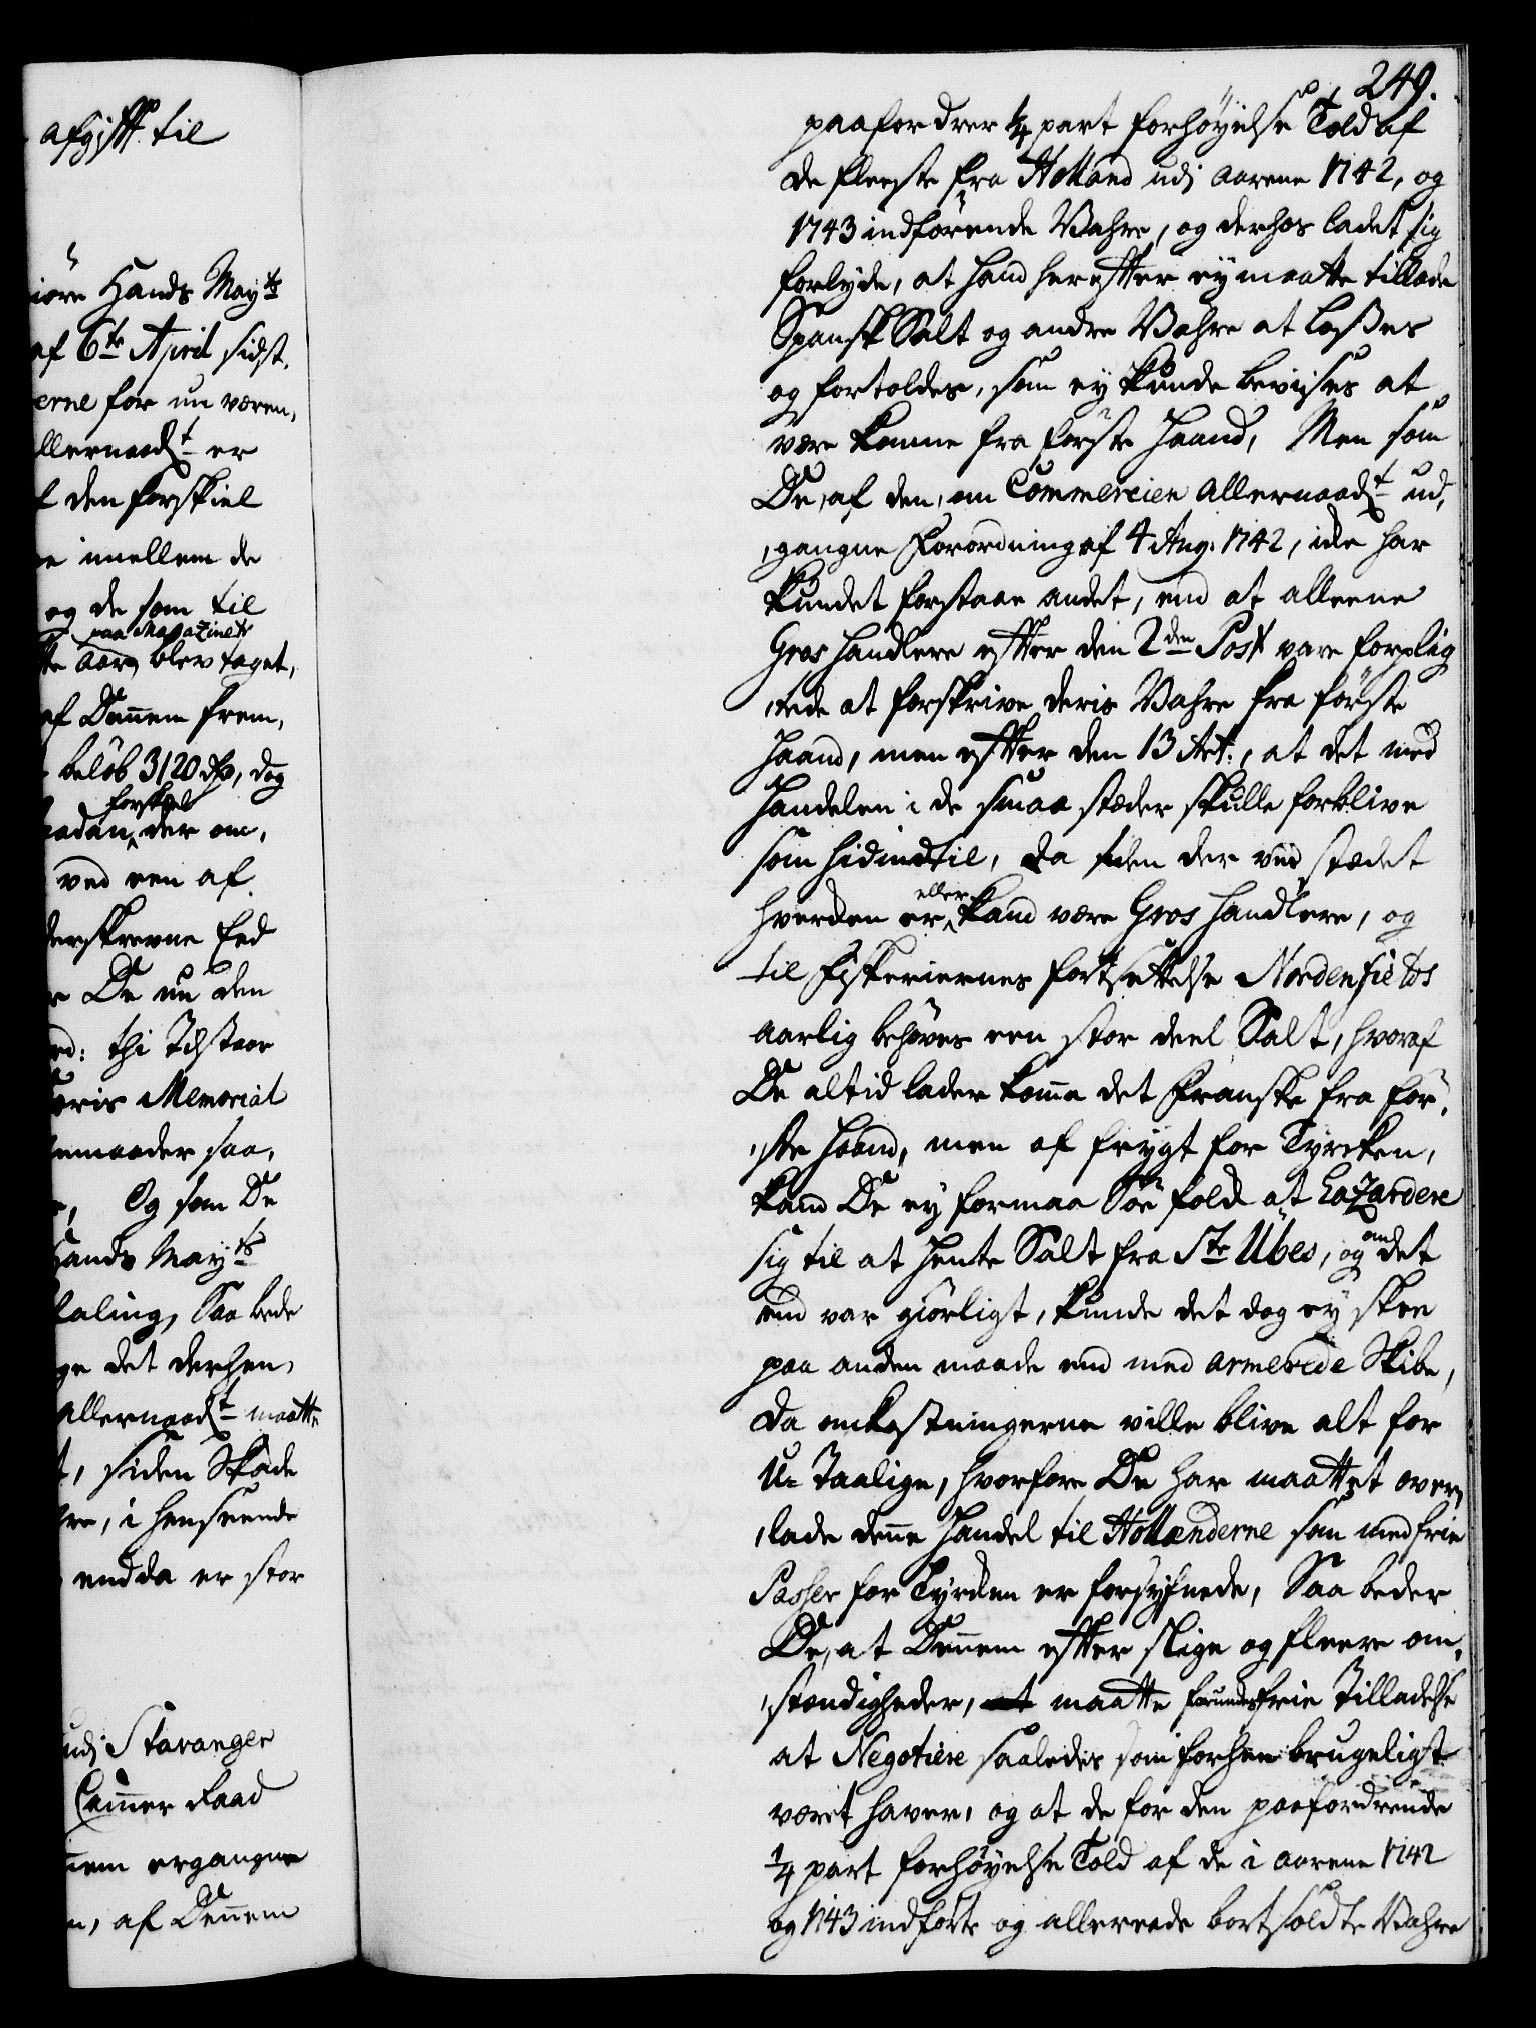 afgifft til
iøre Hands May:ts
af 6te April sidst.
erne for nu væren,
llernaad:t er
f den forskiel
e imellem de
og de som til
paa Magazinet
te aar, blev taget,
af Dennem frem,
beløb 3120 Rd, dog
forskiel
aadan der om,
ved een af
derskrevne Eed
r De nu den
ed: thi Ildstaar
oris Memorial
emaader saa,
e, Og som De
Hands May:ts
taling, Saa bede
ge det derhen,
allernaad:t maatte
t, siden Skade
re, i henseende
endda er stor
udi Stavanger
Cammer Raad
nem ergangne
n, af Dennem
249.
paafordrer 1/4 part forhøyelse Told af
de fleeste fra Holland udi aarene 1742, og
1743 indførende Vahre, og derhos ladet sig
forlyde, at hand herefter ey maatte tillade
Spansk Salt og andre Vahre at losses
og fortoldes, som ey kunde bevises at
være komne fra første Haand, Men som
De, af den, om Commercien allernaad:t ud,
,gangne Forordning af 4 Aug: 1742, icke har
kundet forstaae andet, end at alleene
Gros Handlere efter den 2den Post vare forplig
,tede at forskrive deris Vahre fra første
Haand, men efter den 13 Art:, at det med
Handelen i de smaa stæder skulle forblive
som hidindtil, da siden der ved stædet
hverden er eller kand være Gros Handlere, og
til Fiskeriernes fortsættelse Nordenfields
aarlig behøves een stor deel Salt, hvoraf
De altid lader komme det Franske fra før,
,ste Haand, men af frygt for Tyrcken,
kand De ey formaa Søe folck at hazardere
sig til at hente Salt fra Ste Übes, og om det
end var giørligt, kunde det dog ey skee
paa anden maade end med armerede Skibe,
da omkostningerne ville blive alt for
U-taalige, hvorfore De har maattet over,
,lade denne Handel til Hollænderne som med frie
Passer for Tyrcken er forsyfnede, Saa beder
De, at Dennem efter slige og fleere om,
,stændigheder, maatte forundes frie Tilladelse
at Negotiere saaledes som forhen brugeligt
været haver, og at de for den paafordrende
1/4 part forhøyelse Told af de i aarene 1742
og 1743 indførte og allereede bortsoldte Vahre